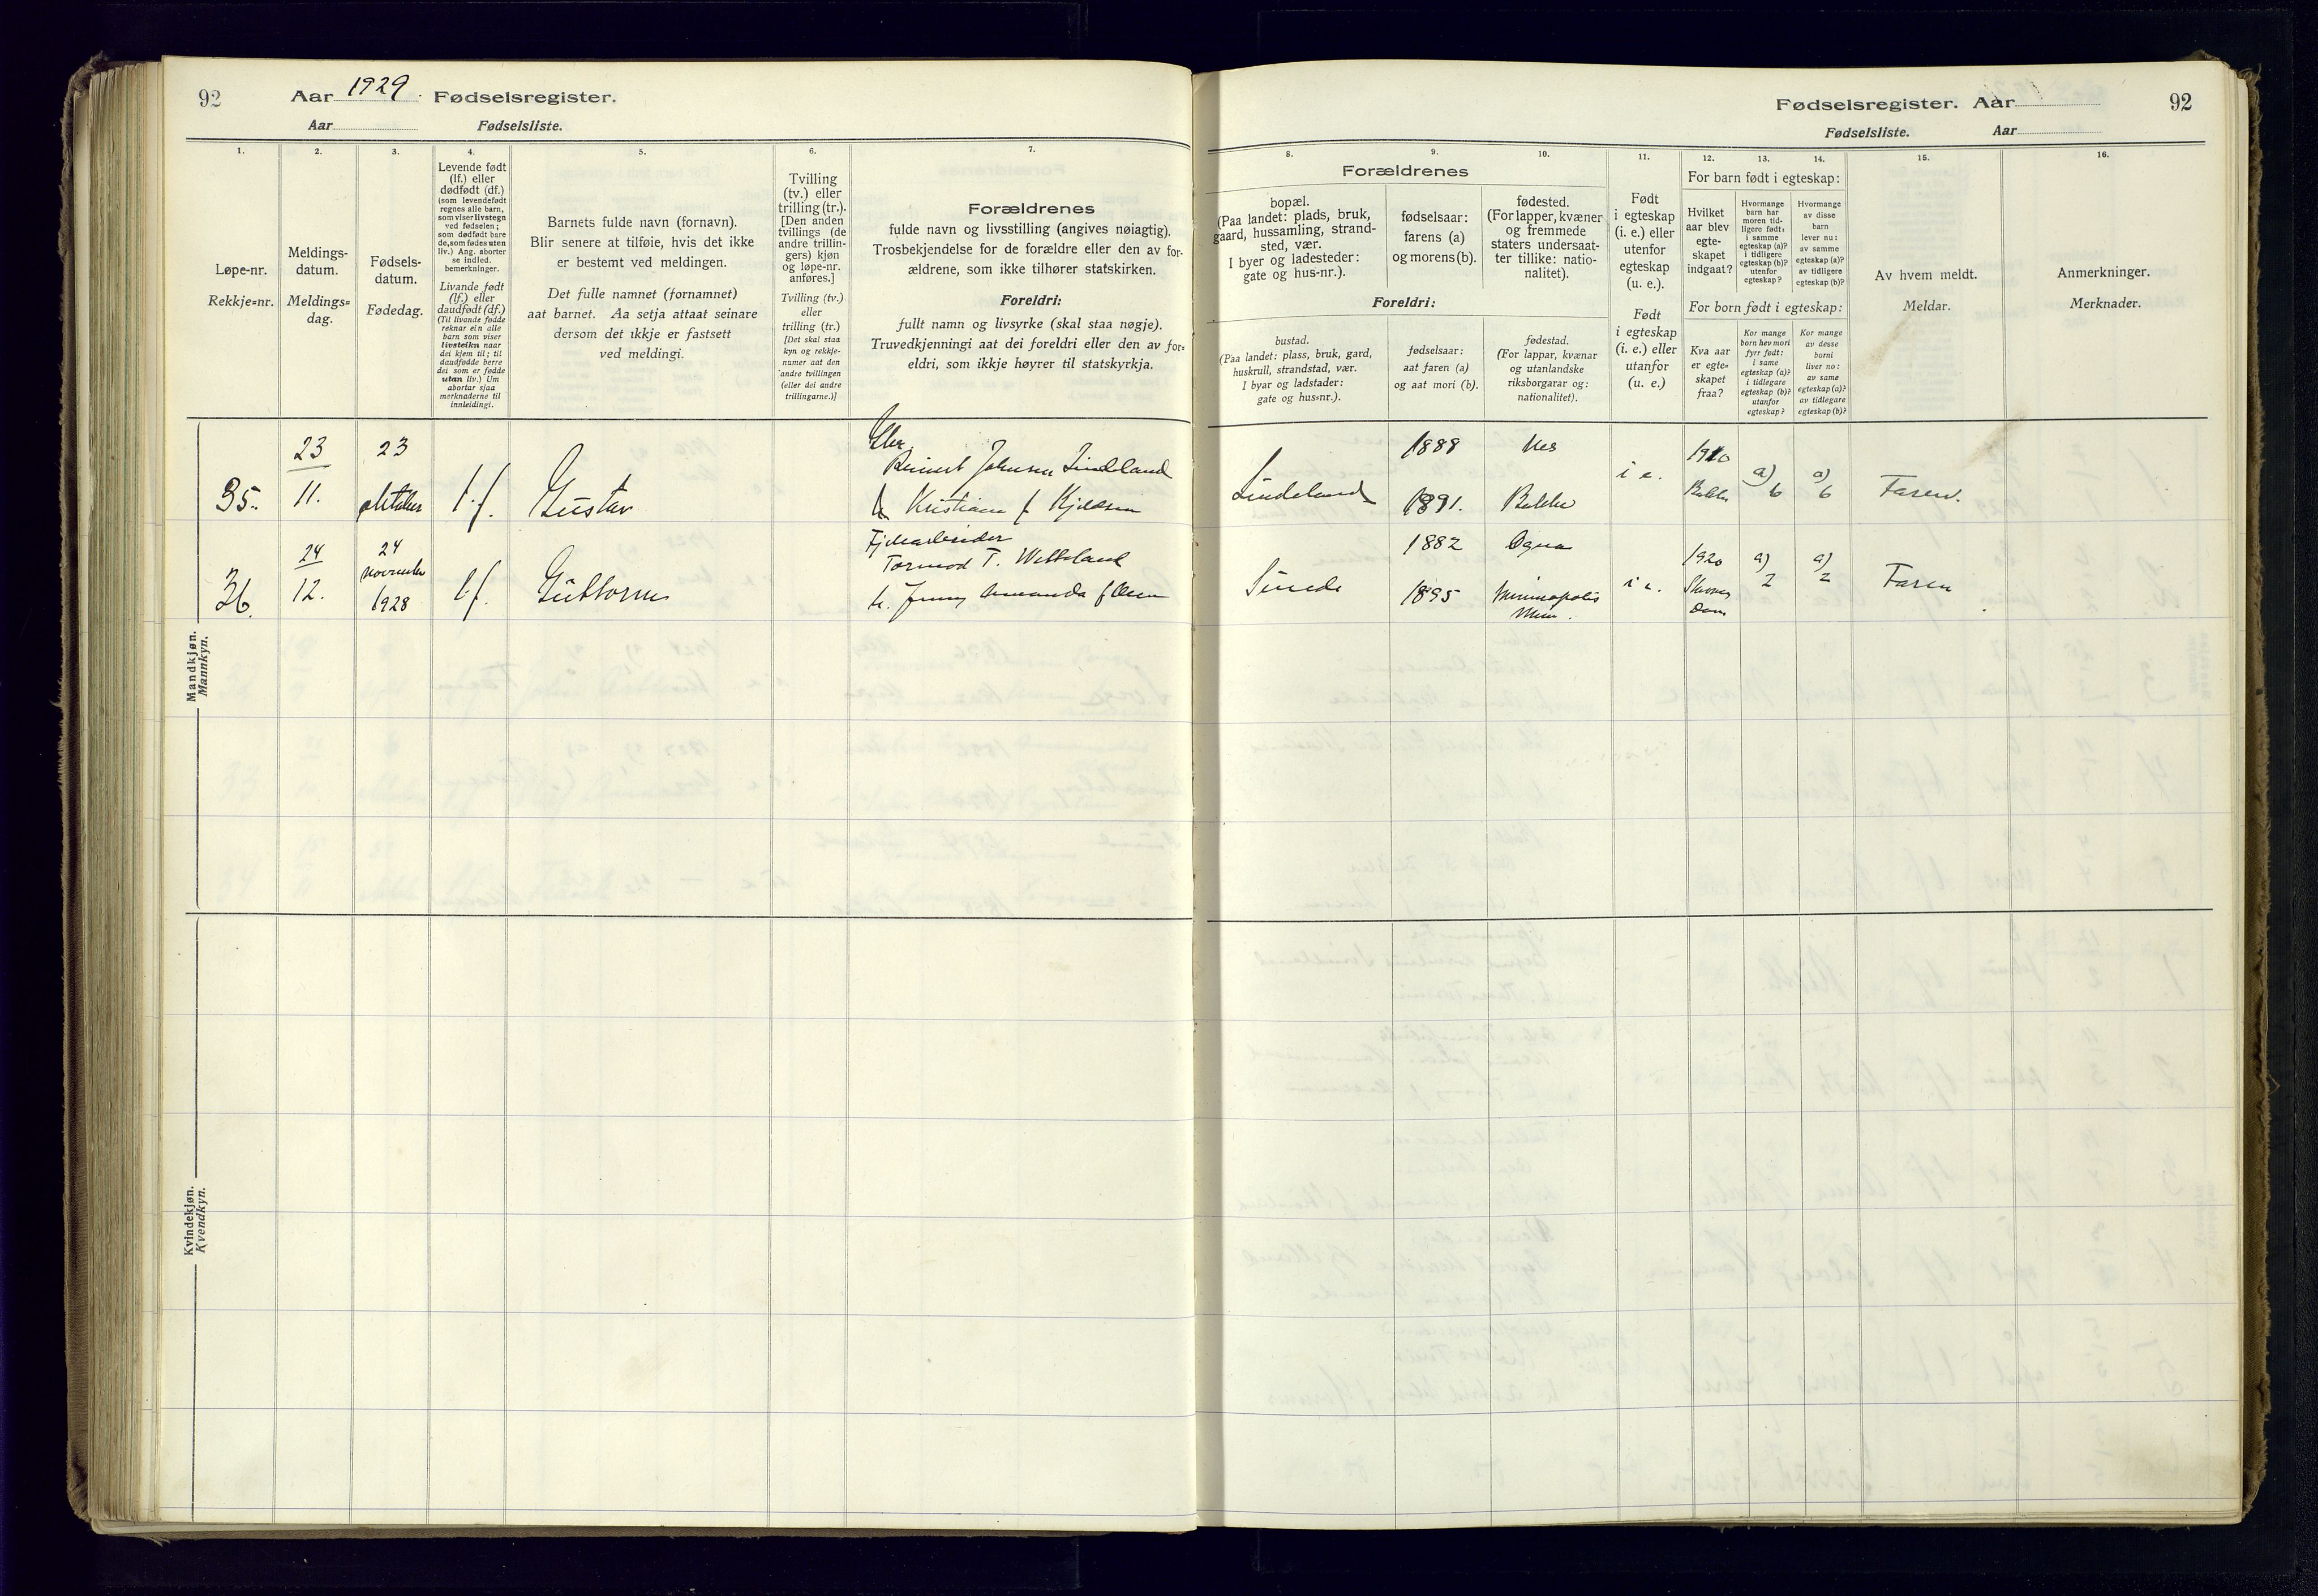 92
Aar 1929. Fødselsregister.
Aar Fødselsliste.
Fødselsregister. Aar
92
Fødselsliste. Aar
1.
Løpe-nr.
Rekkje=nr.
2.
Meldings-
datum.
Meldings=
dag.
3.
Fødsels-
datum.
Fødedag.
4.
Levende født
(lf.) eller
dødfødt (df.)
(som levendefødt
regnes alle barn,
som viser livstegn
ved fødselen;
som dødfødt bare
de, som fødes uten
liv.) Ang. aborter
se indled.
bemerkninger.
Livande født
(lf.) eller
daudfødt (df.)
(Til livande fødde
reknar ein alle
barn som viser
livsteikn naar
dei kjem til; til
daudfødde berre
dei som er fødde
utan liv.) Um
abortar sjaa
merknaderne til
innleidingi.
5.
Barnets fulde navn (fornavn).
Blir senere at tilføie, hvis det ikke
er bestemt ved meldingen.
Det fulle namnet (fornamnet)
aat barnet. Aa setja attaat seinare
dersom det ikkje er fastsett
ved meldingi.
6.
Tvilling
(tv.) eller
trilling (tr.).
[Den anden
tvillings (de
andre trillin-
gers) kjøn
og løpe-nr.
anføres.]
Tvilling (tv.)
eller
trilling (tr.)
[Det skal staa
kyn og rekkje-
numer aat den
andre tvillingen
(eller dei andre
trillingarne.)]
7.
Forældrenes
fulde navn og livsstilling (angives nøiagtig).
Trosbekjendelse for de forældre eller den av for-
ældrene, som ikke tilhører statskirken.
Foreldri:
fullt namn og livsyrke (skal staa nøgje).
Truvedkjenningi aat dei foreldri eller den av for=
eldri, som ikkje høyrer til statskyrkja.
8.
Forældrenes
bopæl.
(Paa landet: plads, bruk,
gaard, hussamling, strand-
sted, vær.
I byer og ladesteder:
gate og hus-nr.).
Foreldri:
bustad.
(Paa landet: plass, bruk, gard,
huskrull, strandstad, vær.
I byar og ladstader:
gate og hus=nr.).
9.
fødselsaar:
farens (a)
og morens (b).
fødselsaar:
aat faren (a)
og aat mori (b).
10.
fødested.
(For lapper, kvæner
og fremmede
staters undersaat-
ter tillike: natio-
nalitet).
fødestad.
(For lappar, kvænar
og utanlandske
riksborgarar og:
nationalitet).
11.
Født
i egteskap
(i. e.) eller
utenfor
egteskap
(u. e.).
Født
i egteskap
(i. e.) eller
utanfor
(u. e.)
12.
For barn født i egteskap:
Hvilket
aar blev
egte-
skapet
indgaat?
For born født i egteskap:
Kva aar
er egte=
skapet
fraa?
13.
Hvormange
barn har
moren tid-
ligere født:
i samme
egteskap (a)?
i tidligere
egteskap (b)?
utenfor
egteskap?
Kor mange
born hev mori
fyrr født:
i same
egteskap (a)?
i tidlegare
egteskap (b)?
utanfor
egteskap?
14.
Hvormange
av disse
barn
lever nu:
av samme
egteskap (a)?
av tidligere
egteskap (b)?
Kor mange
av desse
borni
liver no:
av same
egteskap (a)?
av tidlegare
egteskap (b)?
15.
Av hvem meldt.
Meldar.
16.
Anmerkninger.
Merknader.
Mandkjøn.
Mannkyn.
35. 23 11. 23 oktober l.f. Gustav
Johnsen Lindeland
Kristiane f Kjeldsen
Lindeland 1888 Nes
1891. Bakke
i e. 1910 Bakke a) 6 a) 6 Faren.
36. 24 12. 24 november 1928 l.f. Guttorm
Fjellarbeider
Tormod T. Wetteland
h. Jenny Amanda f Olsen
Sinnede 1882 Ogna
1895 Minniapolis
Min.
i e. 1920 a) 2 a) 2 Faren
Kvindekjøn.
Kvendkyn.